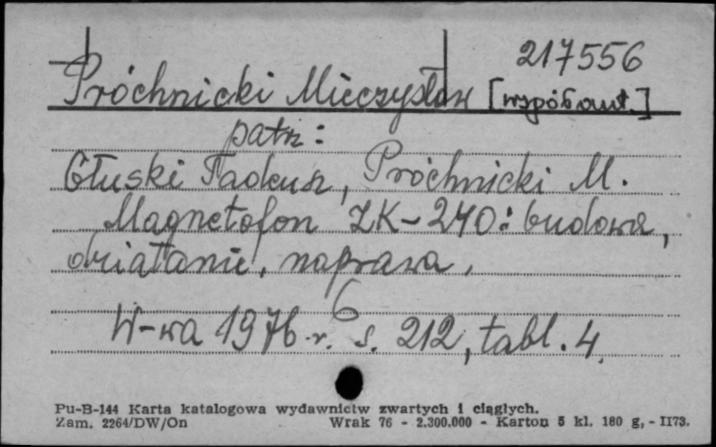 217556
Próchnicki Mieczysław [współaut.]
patrz:
Głuski Tadeusz, Próchnicki M.
Magnetofon ZK-240: budowa,
działanie, naprawa.
6
W-wa 1976 r. s. 212, tabl. 4.
Pu-B-144 Karta katalogowa wydawnictw zwartych i ciągłych.
Zam. 2264/DW/On Wrak 76 - 2.300.000 - Karton 5 kl. 180 g, - II73.